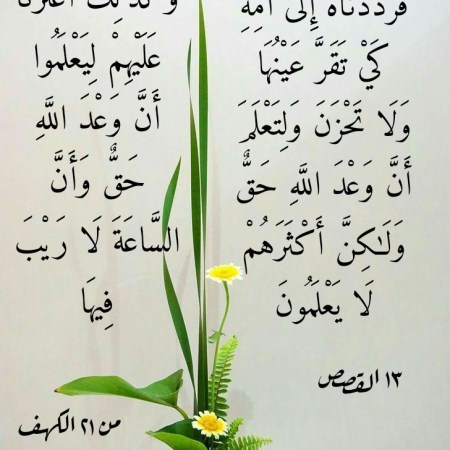 فَرَدَدْنَاهُ إِلَى أُمِّهِ
كَيْ تَقَرَّ عَيْنُهَا
وَلَا تَحْزَنَ وَلِتَعْلَمَ
أَنَّ وَعْدَ اللَّهِ حَقٌّ
وَلَٰكِنَّ أَكْثَرَهُمْ
لَا يَعْلَمُونَ
١٣ القصص
وَكَذَٰلِكَ أَعْثَرْنَا
عَلَيْهِمْ لِيَعْلَمُوا
أَنَّ وَعْدَ اللَّهِ
حَقٌّ وَأَنَّ
السَّاعَةَ لَا رَيْبَ
فِيهَا
من ٢١ الكهف